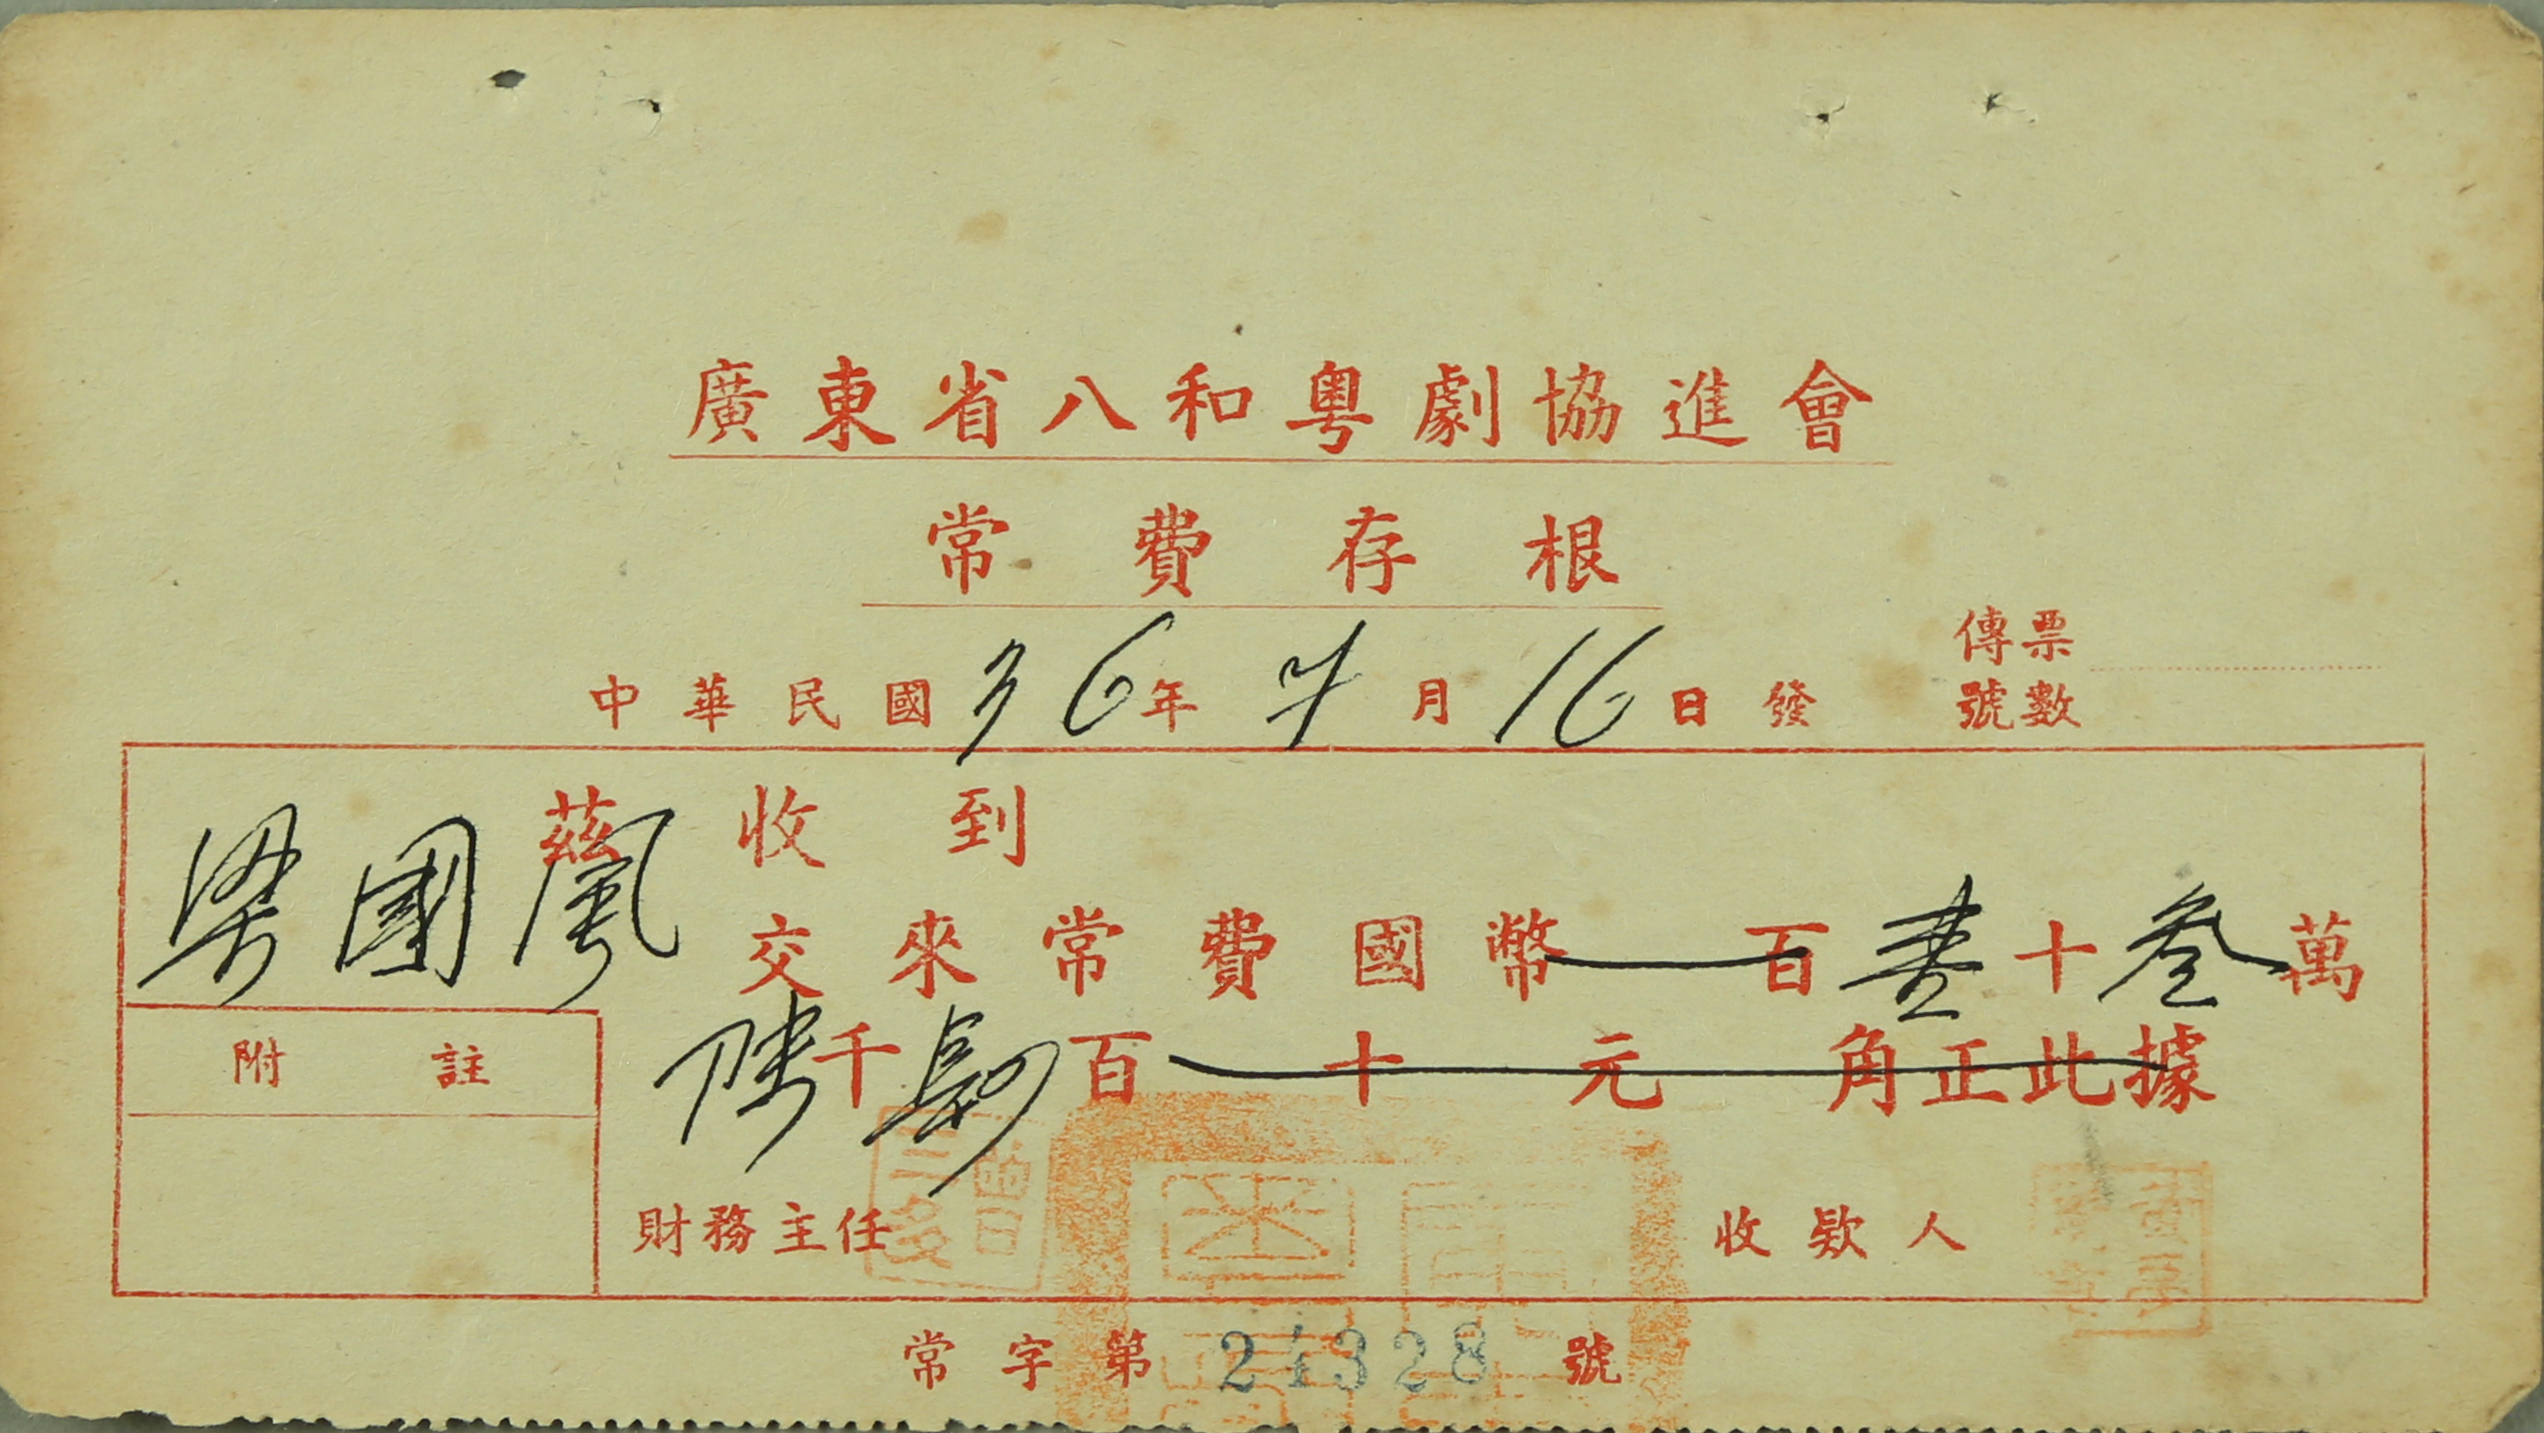 廣東省八和粵劇協進會
常費存根
中華民國36年7月16日發
傳票
號數
茲收到
梁國風交來常費國幣百壹十叁萬
陸千百十元角正此據
附註
財務主任
收欵人
常字第24328號